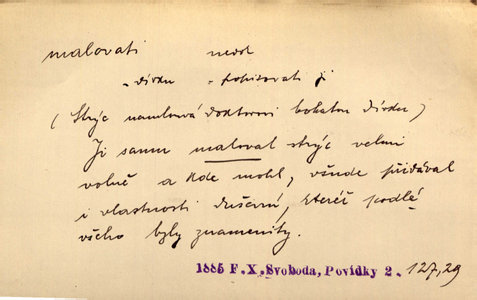 malovati nedok
- dívku - popisovati ji
(Strýc namlouvá doktorovi bohatou dívku)
Ji samu maloval strýc velmi
volně a kde mohl, všude přidával
i vlastnosti duševní, kteréž podlé
všeho byly znamenity.
1885 F. X. Svoboda, Povídky 2. 127,29